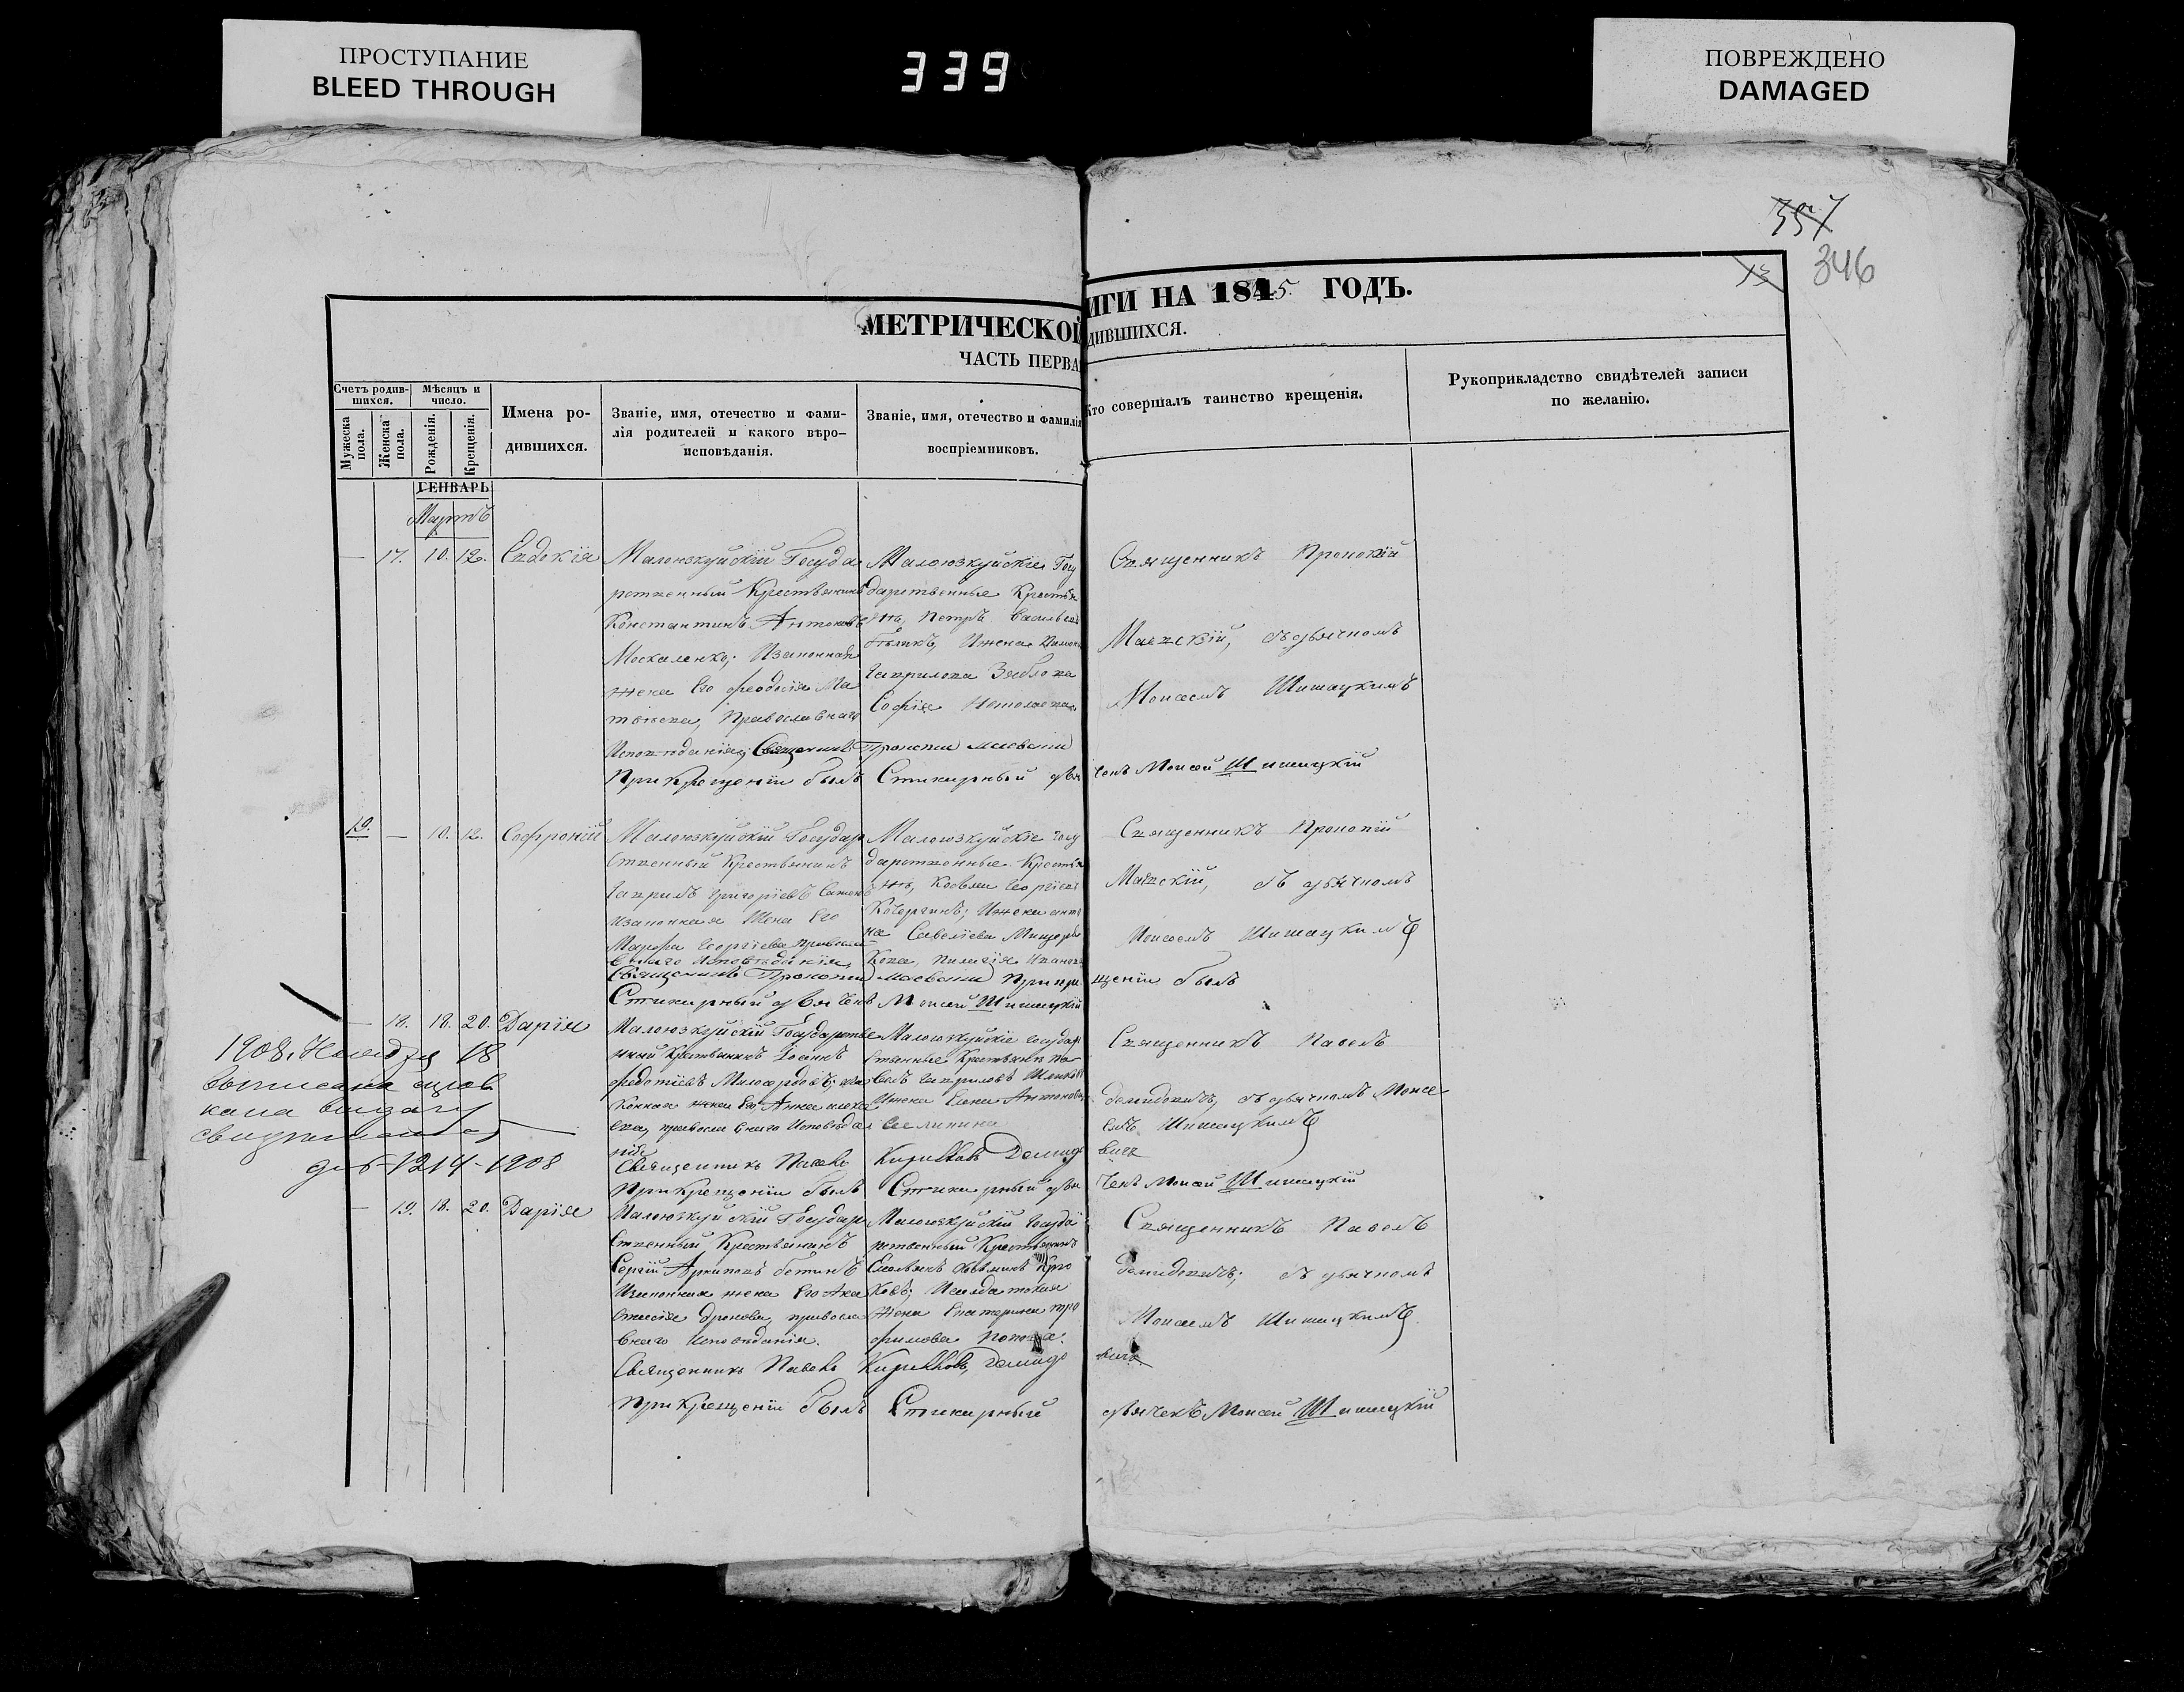 ПРОСТУПАНИЕ
BLEED THROUGH
339
ПОВРЕЖДЕНО
DAMAGED
357
346
13
МЕТРИЧЕСКОЙ
ИГИ НА 1845 ГОДЪ.
ЧАСТЬ ПЕРВА
ДИВШИХСЯ.
Счетъ родив-
шихся.
Мужеска пола.
Женска пола.
Мѣсяцъ и
число.
Рожденія.
Крещенія.
Имена ро-
дившихся.
Званіе, имя, отечество и фами-
лія родителей и какого вѣро-
исповѣданія.
Званіе, имя, отечество и фамилія
воспріемниковъ.
Кто совершалъ таинство крещенія.
Рукоприкладство свидѣтелей записи
по желанію.
ГЕНВАРЬ
Мартъ
— 17. 10. 12. Евдокія
Малоюзкуйскій Госуда
рственный Крестьянинъ
Константинъ Антоновъ
Москаленко; Изаконная
жена Его Феодосія Ма
твѣева, Православнаго
Исповѣданія; Священникъ
При Крещеніи былъ
Малоюзкуйскіе Госу
дарственные Крестья
не, Петръ Васильевъ
Бѣликъ, Ижена
Гаврилова
Софія
Прокопій Маевскій
Стихирный дья
Священникъ Прокопій
Маевскій, съ дьячкомъ
Моисеемъ Шишацкимъ
чекъ Моисей Шишацкій
19. — 10. 12. Софроній
Малоюзкуйскій Государ
ственный Крестьянинъ
Гаврилъ Григоріевъ
Изаконная Жена Его
Марфа Георгіева, правосла
внаго Исповѣданія,
Священникъ Прокопій
Стихирный дьячекъ
Малоюзкуйскіе Госу
дарственные Крестья
не, Козьма Георгіевъ
Кочергинъ; Ижена
на Савеліева
Маевскій При кре
Моисей Шишацкій
Священникъ Прокопій
Маевскій, съ дьячкомъ
Моисеемъ Шишацкимъ
щеніи былъ
— 18. 18. 20. Дарія
Малоюзкуйскій Государстве
нный Крестьянинъ Іоаннъ
Федотіевъ Милосердовъ; иза
конная жена Его Анна
ева, православнаго Исповѣда
нія
Священникъ Павелъ
При Крещеніи былъ
Малоюзкуйскіе Государ
ственные Крестьяне Па
велъ Гавриловъ
Ижена Елена Антонова
Кирилловъ Демидо
Стихирный дья
Священникъ Павелъ
Демидовичъ, съ дьячкомъ Моисе
емъ Шишацкимъ
вичъ
чекъ Моисей Шишацкій
1908, 18
выписана
выдачу
1214-1908
— 19. 18. 20. Дарія
Малоюзкуйскій Государ
ственный Крестьянинъ
Сергій Архиповъ
Изаконная жена Его Ана
стасія правосла
внаго Исповѣданія.
Священникъ Павелъ
При Крещеніи былъ
Малоюзкуйскій Госуда
рственный Крестьянинъ
Исолдатская
жена Екатерина Тро
фимова Попова.
Кирилловъ, Демидо
Стихирный
Священникъ Павелъ
Демидовичъ; съ дьячкомъ
Моисеемъ Шишацкимъ
вичъ
дьячекъ Моисей Шишацкій